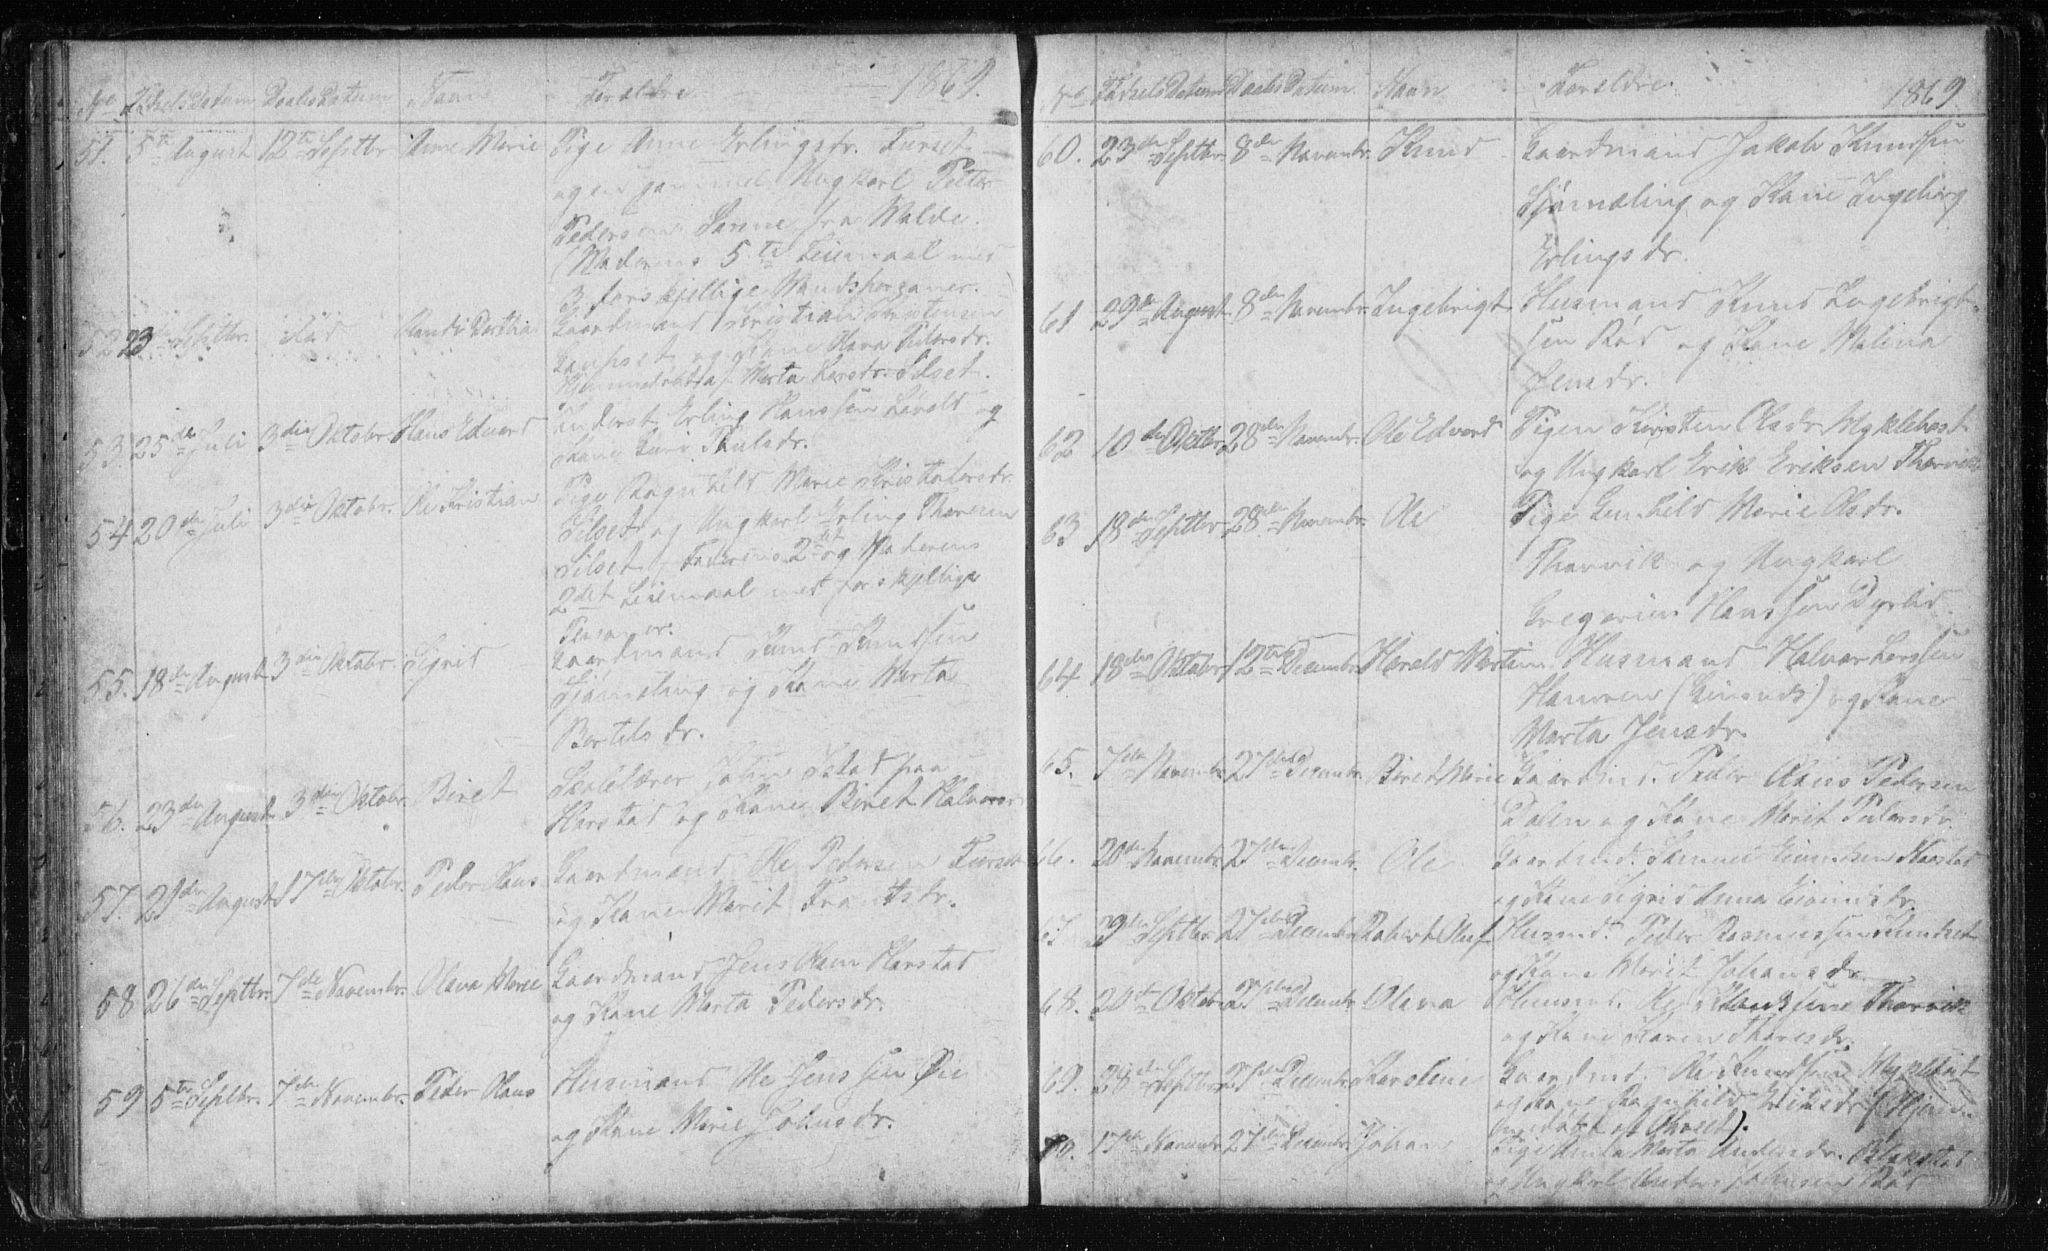 No Fødsels Datum Daabs Datum Navn Forældre 1869.
51. 5te August 12te Septbr. Anne Marie Pige Anne Erlingsdr. Furset
og en gammel Ungkarl Peter
Pedersen fra Molde.
(Moderens 5te Leiermaal med
3 forskjellige Mandspersoner.
52 23 Septbr. Gaardmand Kristian
og Kone Pedersdr.
Hjemmedøbt af Marta Larsdr. Silset.
53. 25de Juli 3die Oktobr. Hans Edvard Inderst Erling Hanssen og
Kone
54 20de Juli 3die Oktobr. Ole Kristian Pige Ragnhild Marie Kristofersdr.
Silset og Ungkarl Erling Thoresen
Silset. Faderens 2det og Moderens
2det Leiermaal med forskjellige
Personer.
55. 18de August 3die Oktobr. Sigrid Gaardmand Knud Knudsen
Sjømæling og Kone Marta
Bertelsdr.
56. 23de August 3die Oktobr. Beret Skolelærer John paa
Harstad og Kone Beret Halvorsdr
57. 21de August 17de Oktobr. Peder Hans Gaardmand Ole Pedersen Furset
og Kone Marit Frantsdr.
58 26de Septbr. 7de Novembr. Olava Marie Gaardmand Jens Harstad
og Kone Marta Pedersdr.
59 5te Septbr. 7de Novembr. Peder Hans Husmand Ole Jenssen Øie
og Kone Marie Johnsdr.
No Fødsels Datum Daabs Datum Navn Forældre. 1869
60. 23de Septbr. 8de Novembr. Knud Gaardmand Jakob Knudsen
Sjømæling og Kone Ingeborg
Erlingsdr.
61 29de August 8de Novembr. Ingebrigt Husmand Knud Ingebrigt-
sen Rød og Kone Malena
Jensdr.
62 10de Oktbr. 28de Novembr. Ole Edvard Pigen Kirsten Olsdr. Myklebost
og Ungkarl Erik Eriksen Thorvik
63 18de Septbr. 28de Novembr. Ole Pige Gunhild Marie Olsdr.
Thorvik og Ungkarl
Gregorius Hanssen Dyrlid.
64 18de Oktobr. 12te Decembr. Harald Martin Husmand Halvor Larssen
Hamren (Eimund) og Kone
Marta Jensdr.
65. 7de Novembr. 27de Decembr. Beret Marie Gaardmd. Peder Hans Pedersen
Dalen og Kone Marit Pedersdr.
66. 20de Novembr. 27de Decembr. Ole Gaardmd. Harstad
og Kone Sigrid Anna
67. 29de Septbr. 27de Decembr. Robert Oluf Husmd. Peder Rasmussen
og Kone Marit Johansdr.
68. 20de Oktobr. 27de Decembr. Olava Husmd. Ole Thorvik
og Kone Karen Thoresdr.
69. 28de Septbr. 27de Decembr. Karoline Gaardmd. Ole Knudssen Myklebost
og Kone Ragnhild Eriksdr. (Hjem-
medøbt af ).
70. 15de Novembr. 27de Decembr. Johan Pige Marta Andersdr. Blakstad
og Ungkarl Anders Johnsen Rød